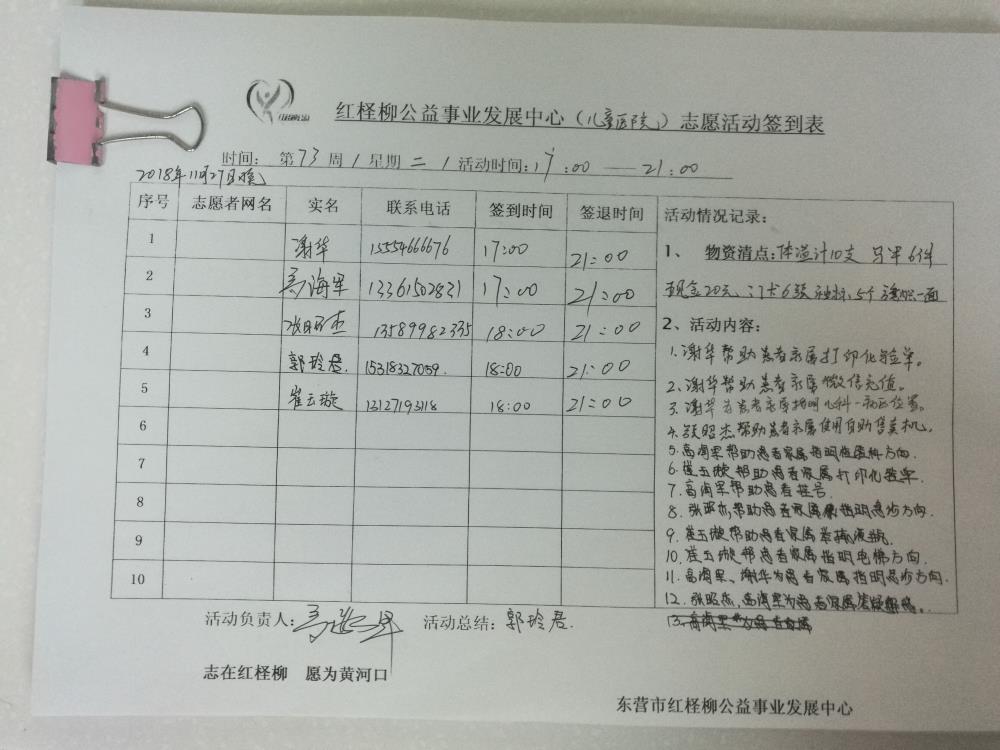 红柽柳公益事业发展中心（儿童医院）志愿活动签到表
时间：第73周/星期二/活动时间：17:00——21:00
2018年11月27日晚
序号 志愿者网名 实名 联系电话 签到时间 签退时间
1 谢华 13554666676 17:00 21:00
2 高海军 13361502821 17:00 21:00
3 张昭杰 13589982335 18:00 21:00
4 郭玲君 15318327059 18:00 21:00
5 崔云璇 13127193118 18:00 21:00
6
7
8
9
10
活动情况记录：
1、 物资清点：体温计10支 马甲6件
现金20元、门卡6张 袖标5个 旗帜一面
2、活动内容：
1.谢华帮助患者家属打印化验单。
2.谢华帮助患者家属微信充值。
3.谢华为患者家属指明儿科一病区位置。
4.张昭杰帮助患者家属使用自助售卖机。
5.高海军帮助患者家属指明方向.
6.崔云璇帮助患者家属打印化验单.
7.高海军帮助患者挂号.
8.张昭杰帮助患者家属指明急诊方向.
9.崔云璇帮助患者家属举输液瓶.
10.崔云璇帮患者家属指明电梯方向.
11.高海军、谢华为患者家属指明急诊方向.
12.张昭杰,高海军为患者家属答疑解惑。
活动负责人：高海军 活动总结：郭玲君.
志在红柽柳 愿为黄河口
东营市红柽柳公益事业发展中心